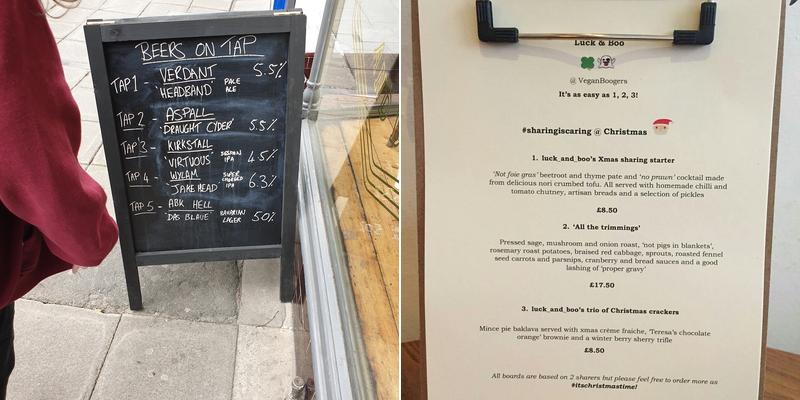 BEERS ON TAP
TAP 1 - VERDANT 5.5%
'HEADBAND' PALE ALE
TAP 2 - ASPALL
'DRAUGHT CYDER' 5.5%
TAP 3 - KIRKSTALL
'VIRTUOUS' SESSION IPA 4.5%
TAP 4 - WYLAM
'JAKE HEAD' SUPER CHARGED IPA 6.3%
TAP 5 - ABK HELL
'DAS BLAUE' BAVARIAN LAGER 5.0%
Luck & Boo
@ VeganBoogers
It's as easy as 1, 2, 3!
#sharingiscaring @ Christmas
1. luck_and_boo's Xmas sharing starter
'Not foie gras' beetroot and thyme pate and 'no prawn' cocktail made
from delicious nori crumbed tofu. All served with homemade chilli and
tomato chutney, artisan breads and a selection of pickles
£8.50
2. 'All the trimmings'
Pressed sage, mushroom and onion roast, 'not pigs in blankets',
rosemary roast potatoes, braised red cabbage, sprouts, roasted fennel
seed carrots and parsnips, cranberry and bread sauces and a good
lashing of 'proper gravy'
£17.50
3. luck_and_boo's trio of Christmas crackers
Mince pie baklava served with xmas crème fraiche, 'Teresa's chocolate
orange' brownie and a winter berry sherry trifle
£8.50
All boards are based on 2 sharers but please feel free to order more as
#itschristmastime!